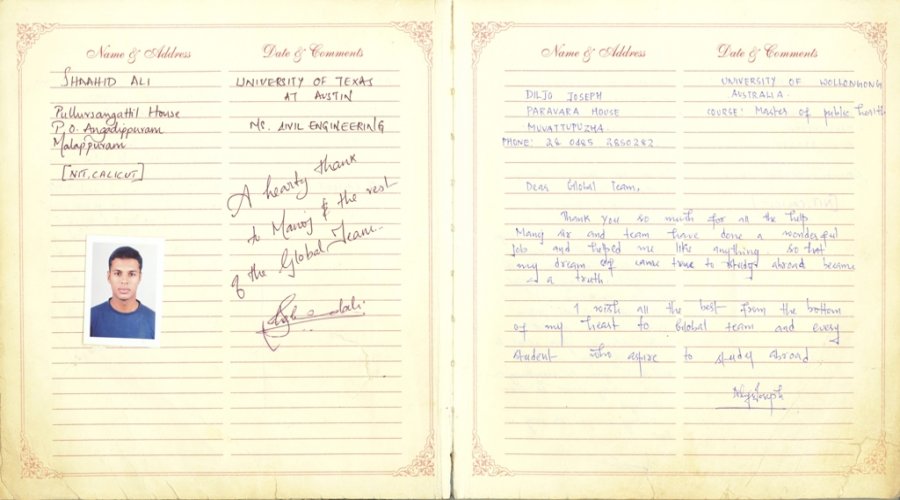 Name & Address
Date & Comments
SHAAHID ALI
Pullursangathil House
P.O. Angadippuram
Malappuram
[NIT, CALICUT]
UNIVERSITY OF TEXAS
AT AUSTIN
MS. CIVIL ENGINEERING
A hearty thank
to Manoj & the rest
of the Global Team...
Name & Address
Date & Comments
DILJO JOSEPH
PARAVARA HOUSE
MUVATTUPUZHA
PHONE: 0485 2850282
UNIVERSITY OF WOLLONGONG
AUSTRALIA.
COURSE: Master of public health
Dear Global Team,
Thank you so much for all the help
Manoj sir and team have done a wonderful
job and helped me like anything so that
my dream of came true to study abroad became
as a truth
I wish all the best from the bottom
of my heart to Global team and every
student who aspire to study abroad